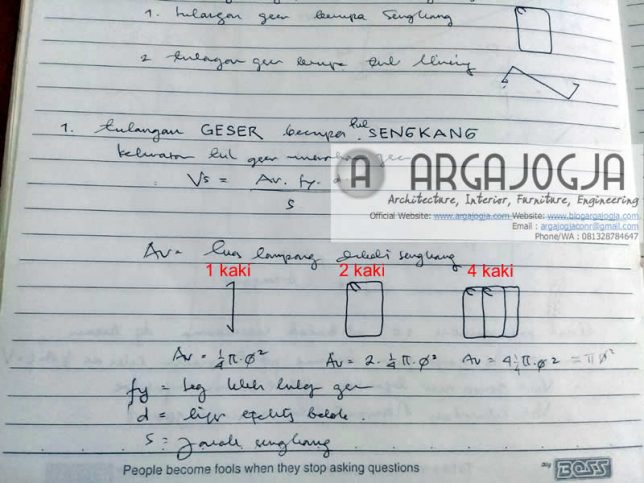 1. tulangan geser berupa Sengkang
2 tulangan geser berupa tul Miring
1. tulangan GESER berupa tul. SENGKANG
kekuatan tul geser menahan geser
Vs = Av. fy. d
s
A ARGAJOGJA
Architecture, Interior, Furniture, Engineering
Official Website: www.argajogja.com Website: www.blogargajogja.com
Email : argajogjaconr@gmail.com
Phone/WA : 081328784647
Av = luas tampang sengkang
1 kaki 2 kaki 4 kaki
Av = ¼ π. ø² Av = 2. ¼ π. ø² Av = 4 ¼ π. ø² = π ø²
fy = teg leleh tulang geser
d = tinggi efektif balok.
s = jarak sengkang
People become fools when they stop asking questions
by BOSS